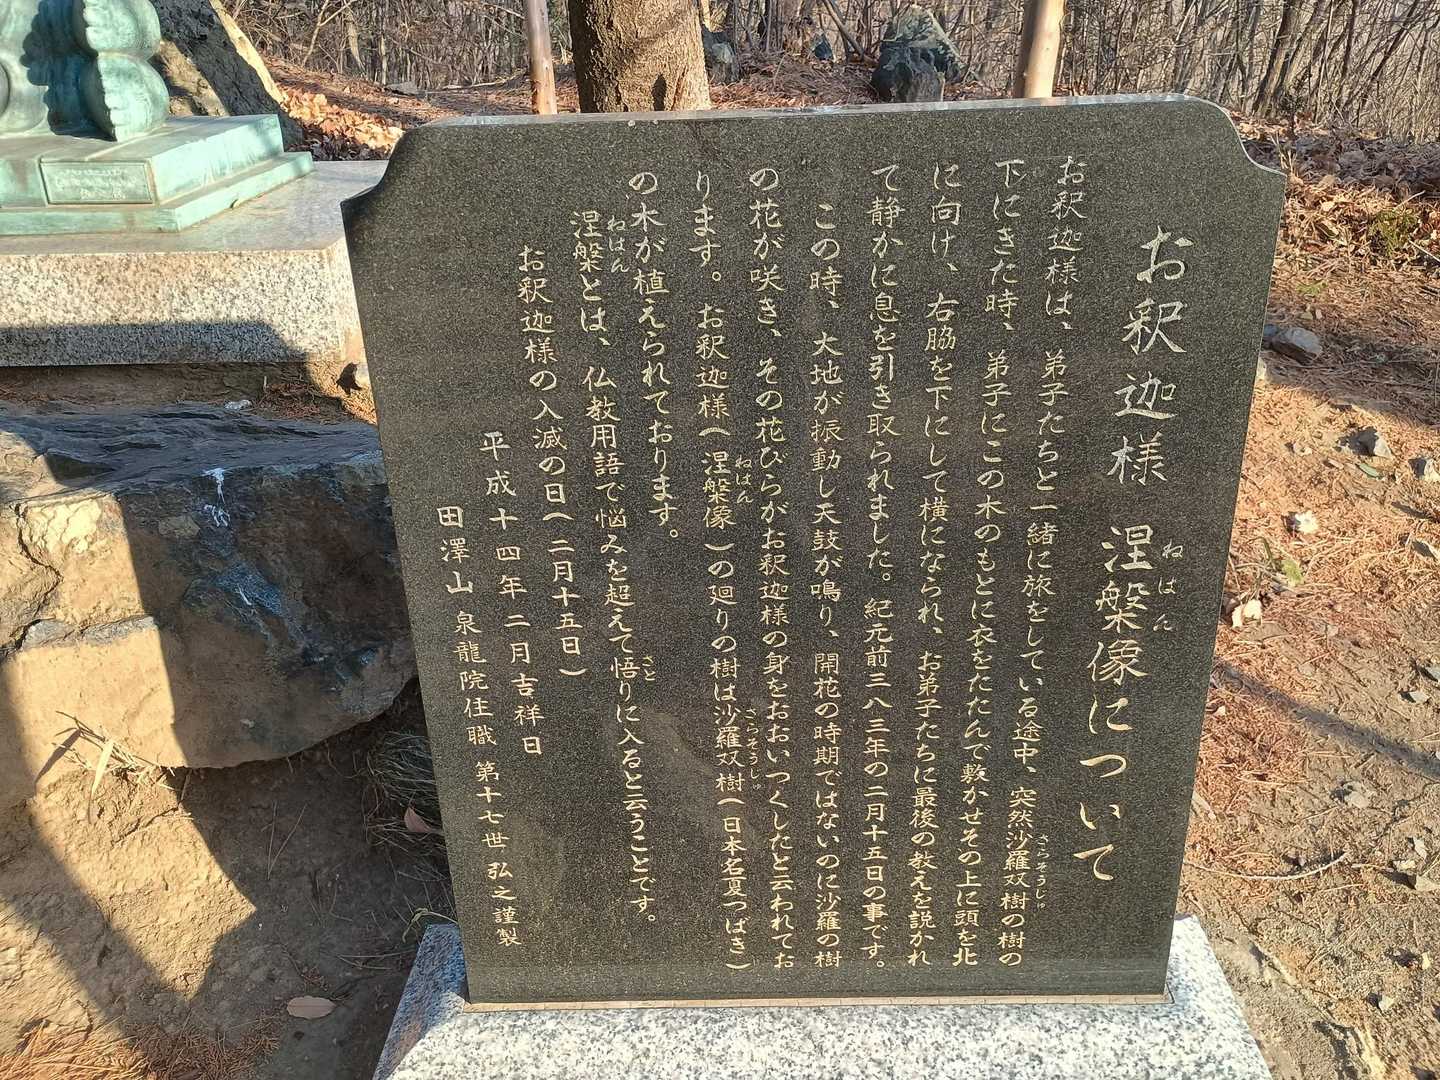 お釈迦様 涅槃像について
ねはん
お釈迦様は、弟子たちと一緒に旅をしている途中、突然沙羅双樹の樹の
さらそうじゅ
下にきた時、弟子にこの木のもとに衣をたたんで敷かせその上に頭を北
に向け、右脇を下にして横になられ、お弟子たちに最後の教えを説かれ
て静かに息を引き取られました。紀元前三八三年の二月十五日の事です。
この時、大地が振動し天鼓が鳴り、開花の時期ではないのに沙羅の樹
の花が咲き、その花びらがお釈迦様の身をおおいつくしたと云われてお
ります。お釈迦様(涅槃像)の廻りの樹は沙羅双樹(日本名夏つばき)
ねはん
さらそうじゅ
の木が植えられております。
涅槃とは、仏教用語で悩みを超えて悟りに入ると云うことです。
ねはん
さと
お釈迦様の入滅の日(二月十五日)
平成十四年二月吉祥日
田澤山 泉龍院住職 第十七世 弘之謹製